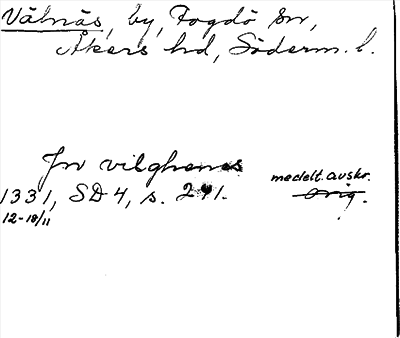 Välnäs, by, Fogdö sn,
Åkers hd, Söderm. l.
Jn vilghenes
medelt. avskr.
1331, SD 4, s. 241.
orig.
12-18/11